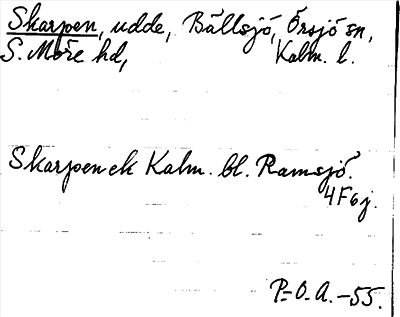 Skarpen, udde, Bällsjö, Örsjö sn,
S. Möre hd, Kalm. l.
Skarpen ek Kalm. bl. Ramsjö.
4F6j.
P.-O.A. -55.